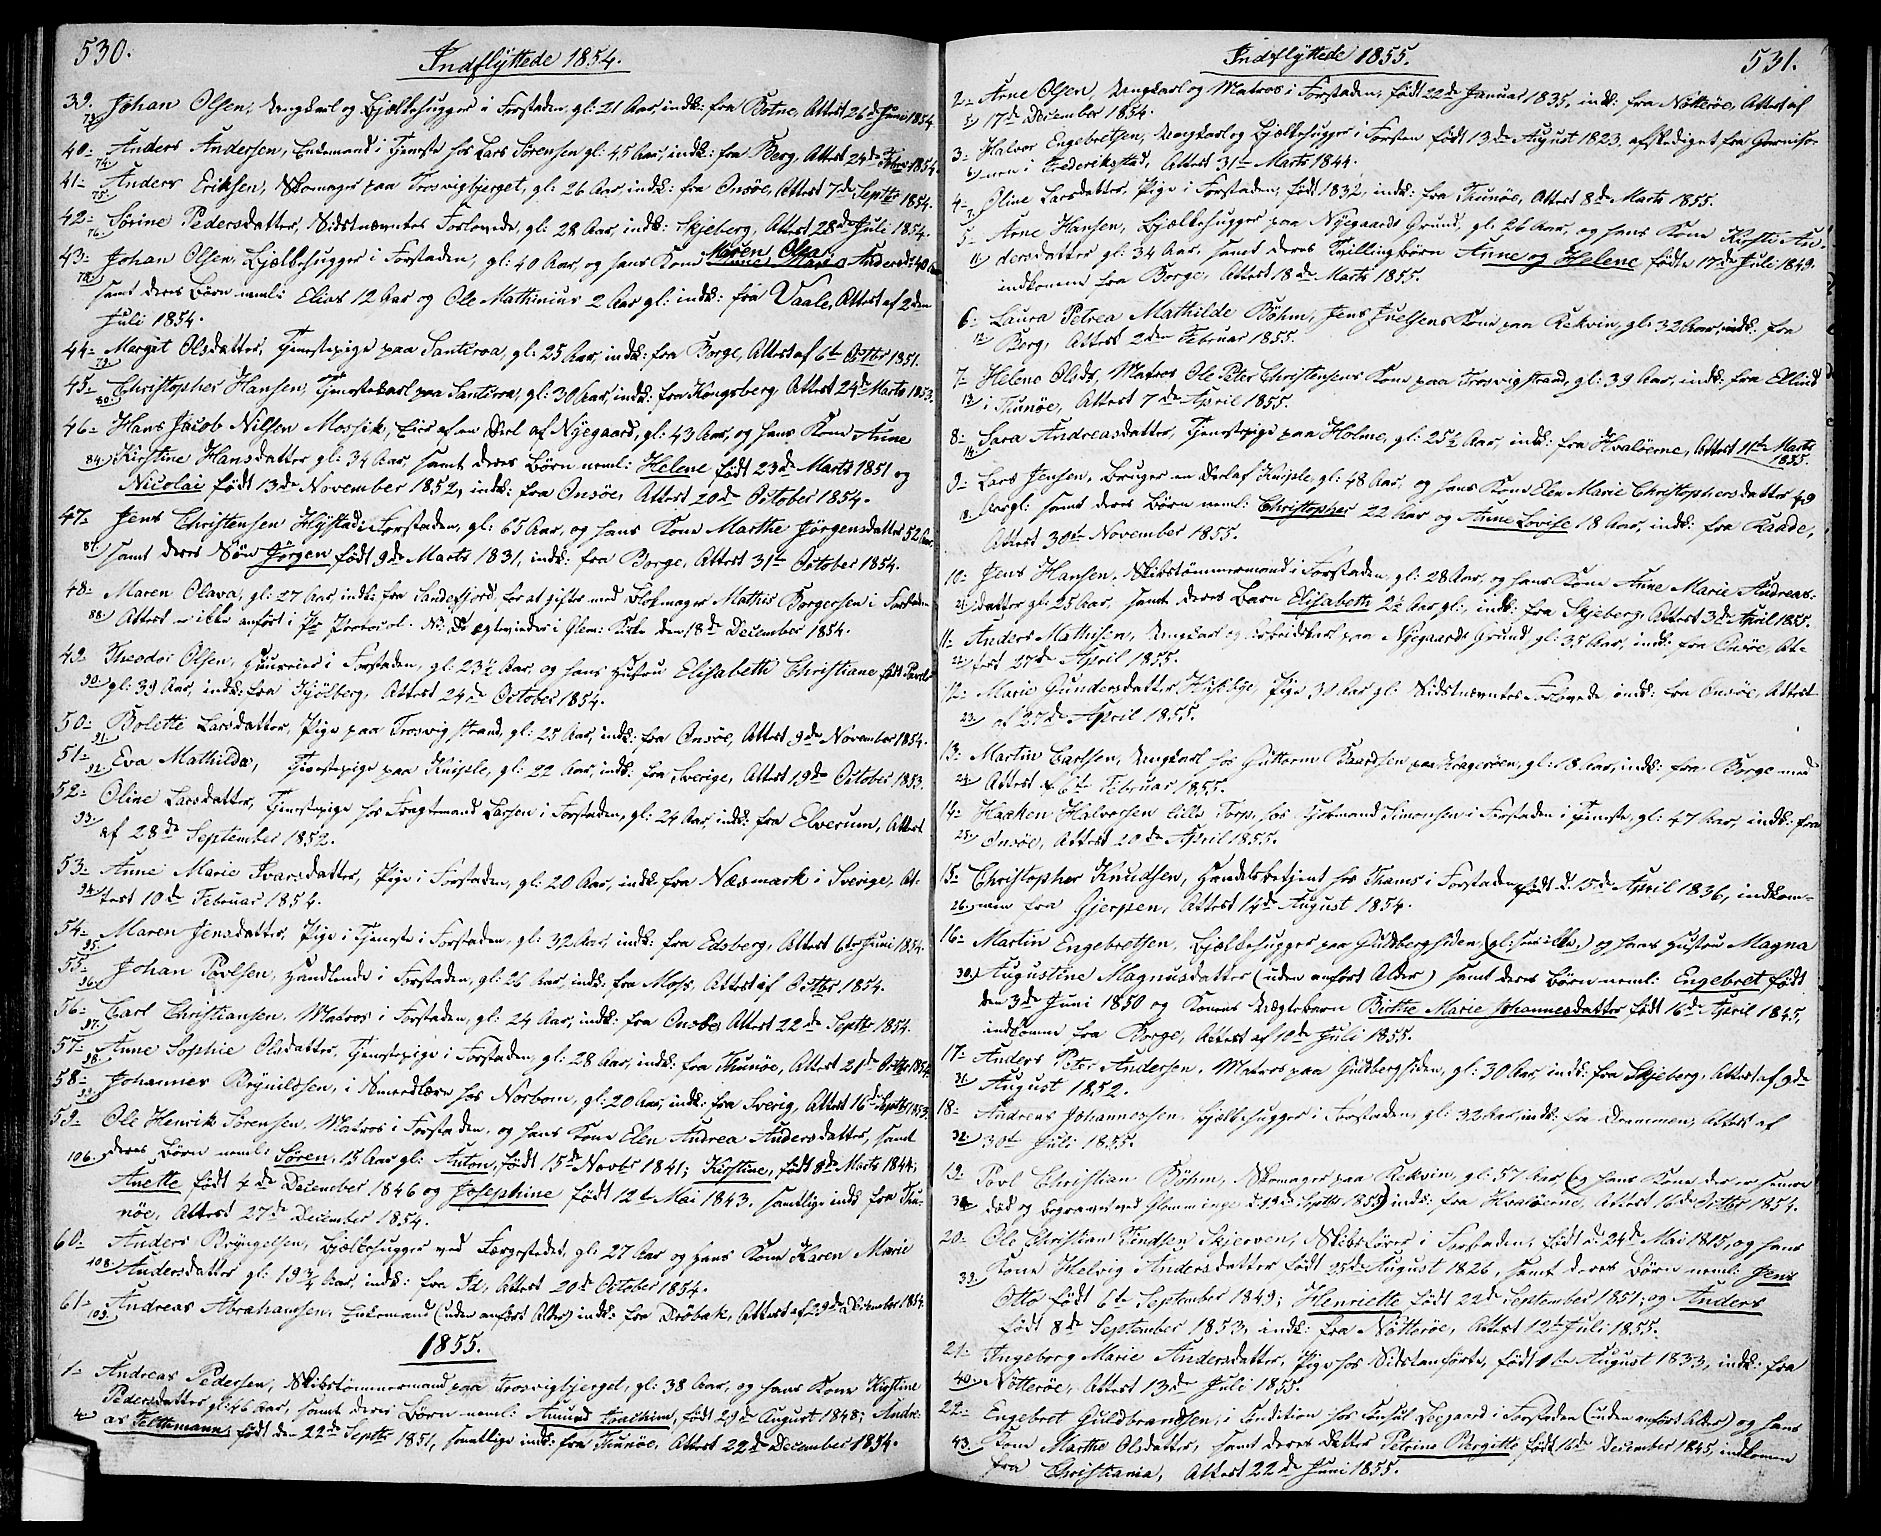 530.
Indflyttede 1854.
39. Johan Olsen, Ungkarl og Bjælkehugger i Forstaden, gl: 21 Aar, indk: fra Botne, Attest 26de Juni 1854.
73)
40- Anders Andersen, Enkemand i Tjeneste hos Lars Sørensen gl: 45 Aar, indk: fra Berg, Attest 24de 1854.
74)
41- Anders Eriksen, Skomager paa Trosvigbjerget, gl: 26 Aar, indk: fra Onsøe, Attest 7de Septbr 1854.
75)
42- Sørine Pedersdatter, Sidstnævntes Forlovede, gl: 28 Aar, indk: Skjeberg, Attest 28de Juli 1854.
76)
Maren Olea
43- Johan Olsen, Bjælkehugger i Forstaden, gl: 40 Aar, og hans Kone Andersd: 40 Aar
78) samt deres Børn neml: Elias 12 Aar og Ole Mathinius 2 Aar gl: indk: fra Vaale, Attest af 2den
Juli 1854.
44- Margit Olsdatter, Tjenestepige paa Santirva, gl: 25 Aar, indk: fra Borge, Attest af 6te Octbr 1851.
79)
45- Christopher Hansen, Tjenestekarl paa Santirva, gl: 30 Aar, indk: fra Kongsberg, Attest 24de Marts 1853.
80)
46- Hans Jacob Nilsen Mossik, Eier af en Deel af Nyegaard, gl: 43 Aar, og hans Kone Anne
84) Kirstine Hansdatter gl: 34 Aar, samt deres Børn neml: Helene født 23de Marts 1851 og
Nicolai, født 13de November 1852, indk: fra Onsøe, Attest 20de October 1854.
47- Jens Christensen Hystad i Forstaden, gl: 65 Aar, og hans Kone Marthe Jörgensdatter 52 Aar
87) samt deres Søn Jørgen født 9de Marts 1831, indk: fra Borge, Attest 31te October 1854.
48- Maren Olava, gl: 27 Aar indk: fra Sandefjord, for at giftes med Blokmager Mathis Borgersen i Forstaden
88) Attest er ikke anført i Pr Protocol. De ægtevieder i Glem: Kirke den 18de December 1854.
49- Theodor Olsen, i Forstaden, gl: 23½ Aar, og hans Hustru Elisabeth Christiane født
90) gl: 39 Aar, indk: fra Kjølberg, Attest 24de October 1854.
50- Bolette Larsdatter, Pige paa Trosvigstrand, gl: 25 Aar, indk: fra Onsøe, Attest 9de November 1854.
91)
51- Eva Mathilda, Tjenestepige paa Kniple, gl: 22 Aar, indk: fra Sverige, Attest 19de October 1853.
92)
52- Oline Larsdatter, Tjenestepige hos Fragtmand Larsen i Forstaden, gl: 24 Aar, indk: fra Elverum, Attest
93) af 28de September 1852.
53- Anne Marie Ivarsdatter, Pige i Forstaden, gl: 20 Aar, indk: fra Næsmark i Sverige, At-
94) test 10de Februar 1854.
54- Maren Jensdatter, Pige i Tjeneste i Forstaden, gl: 32 Aar, indk: fra Edsberg, Attest 6te Juni 1854.
95)
55- Johan Povlsen, Handlende i Forstaden, gl: 26 Aar, indk: fra Moss, Attest af Octbr 1854.
96)
56- Carl Christiansen, Matros i Forstaden, gl: 24 Aar, indk: fra Onsøe, Attest 22de Septbr 1854.
97)
57- Anne Sophie Olsdatter, Tjenestepige i Forstaden, gl: 28 Aar, indk: fra Thunøe, Attest 21de Octbr 1854.
98)
58- Johannes Brynildsen, i Smedelære hos Norbom, gl: 20 Aar, indk: fra Sverig, Attest 16de Septbr 1853.
99)
59- Ole Henrik Sørensen, Matros i Forstaden, og hans Kone Elen Andrea Andersdatter, samt
106) deres Børn neml: Søren, 15 Aar gl: Anton, født 15de Novbr 1841; Kirstine, født 8de Marts 1844,
Anette født 4de December 1846 og Josephine født 12te Mai 1843, samtlige indk: fra Thu-
nøe, Attest 27de December 1854.
60- Anders Bryngelsen, Bjælkehugger ved Færgestedet, gl: 27 Aar og hans Kone Karen Marie
108) Andersdatter gl: 19¾ Aar, indk: fra Id, Attest 20de October 1854.
61- Andreas Abrahamsen, Enkemand (uden anført Alder) indk: fra Drøbak, Attest af 29de December 1854.
109)
1855.
1- Andreas Pedersen, Skibstømmermand paa Trosvigbjerget, gl: 38 Aar, og hans Kone Kirstine
Pedersdatter gl: 46 Aar, samt deres Børn neml: Amund Joachim, født 29de August 1848; Andre-
4) as Telthmann, født den 22de Septbr 1851, samtlige indk: fra Thunøe, Attest 22de December 1854.
Indflyttede 1855.
531.
2- Arne Olsen, Ungkarl og Matros i Forstaden, født 22de Januar 1835, indk: fra Nötterøe, Attest af
5) 17de December 1854.
3- Halvor Engebretsen, Ungkarl og Bjælkehugger i Forstaden født 13de August 1823, afskediget fra Garniso-
6) nen i Frederikstad, Attest 31te Marts 1844.
4- Oline Larsdatter, Pige i Forstaden, født 1832, indk: fra Thunøe, Attest 8de Marts 1855.
7)
5- Arne Hansen, Bjælkehugger paa Nyegaards Grund, gl: 26 Aar, og hans Kone Kirsti An-
11) dersdatter gl: 34 Aar, samt deres Tvillingbørn Anne og Helene født 17de Juli 1849.
indkomne fra Borge, Attest 18de Marts 1855.
6- Laura Petrea Mathilde Bøhm, Jens Juelsens Kone paa Rekvin, gl: 32 Aar, indk: fra
12) Borg, Attest 2den Februar 1855.
7- Helene Olsdr, Matros Ole Peter Christensens Kone paa Trosvigstrand, gl: 39 Aar, indk: fra
13) i Thunøe, Attest 7de April 1855.
8- Sara Andreasdatter, Tjenestepige paa Holme, gl: 25½ Aar, indk: fra Hvaløerne, Attest 11te Marts
14) 1855.
9- Lars Jensen, Bruger en Deel af Kniple, gl: 48 Aar, og hans Kone Elen Marie Christophersdatter 49
18) Aar gl: samt deres Børn neml: Christopher 22 Aar og Anne Lovise 18 Aar, indk: fra Raade,
Attest 30te November 1855.
10- Jens Hansen, Skibstømmermand i Forstaden, gl: 28 Aar, og hans Kone Anne Marie Andreas-
21) datter gl: 25 Aar, samt deres Barn Elisabeth 2½ Aar gl:, indk: fra Skjeberg, Attest 3de April 1855.
11- Anders Mathisen, Ungkarl og Arbeidskarl paa Nyegaards Grund gl: 35 Aar, indk: fra Onsøe, At-
22) test 27de April 1855.
12- Marie Gundersdatter Huseby, Pige 30 Aar gl: Sidstnævntes Forlovede indk: fra Onsøe, Attest
23) af 27de April 1855.
13- Martin Carlsen, Ungkarl hos Guttorm Baardsen paa Kragerøen, gl: 18 Aar, indk: fra Borge med
24) Attest af 6te Februar 1855.
14- Haaken Halvorsen lille Torp, hos Simonsen i Forstaden i Tjeneste, gl: 47 Aar, indk: fra
25) Onsøe, Attest 20de April 1855.
15- Christopher Knudsen, Handelsbetjent hos Thams i Forstaden, født d. 15de April 1836, indkom-
26) men fra Gjerpen, Attest 14de August 1854.
16- Martin Engebretsen, Bjælkehugger paa Guldbergsiden, og hans Hustru Magna
30) Augustine Magnusdatter (uden anført Alder) samt deres Børn neml: Engebret født
den 3de Juni 1850 og Konens Uægtebarn Birthe Marie Johannesdatter født 16de April 1845,
indkomne fra Borge, Attest af 10de Juli 1855.
17- Anders Peter Andersen, Matros paa Guldbergsiden, gl: 30 Aar, indk: fra Skjeberg, Attest af 9de
31) August 1852.
18- Andreas Johannessen, Bjælkehugger i Forstaden, gl: 32 Aar, indk: fra Drammen, Attest af
32) 30te Juli 1855.
19- Povl Christian Bøhm, Skomager paa Rekvin, gl: 57 Aar (og hans Kone, der er senere
34) død og begravet ved Glemminge d. 19de Septbr 1855) indk: fra Hvaløerne, Attest 16de Octbr 1854.
20- Ole Christian Findsen Skjerven, Skibsfører i Forstaden, født d. 24de Mai 1815, og hans
39) Kone Helvig Andersdatter født 25de August 1826, samt deres Børn neml: Jens
Otto født 6te September 1849; Henriette født 22de September 1851; og Anders
født 8de September 1853, indk: fra Nötterøe, Attest 12te Juli 1855.
21- Ingeborg Marie Andersdatter, Pige hos Sidstanførte, født 1te August 1833, indk: fra
40) Nötterøe, Attest 13de Juli 1855.
22- Engebret Guldbrandsen, i Condition hos Consul Leegaard i Forstaden (uden anført Alder) og hans
43) Kone Marthe Olsdatter, samt deres Datter Petrine Bergitte født 16de December 1845, indkomne
fra Christiania, Attest 22de Juni 1855.